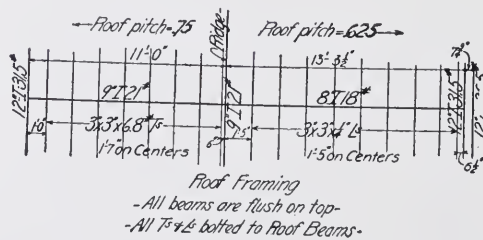 ←Roof pitch=.75
Ridge
Roof pitch=.625→
11'-0"
13'-3½"
7½"
12"I31.5
9"I21#
9"I21#
8"I18#
12"I31.5
12"
1'-0"
3"x3"x6.8# Ts
1'-7" on Centers
6"
1'-5"
3"x3"x¼" Ls
1'-5" on Centers
6½"
Roof Framing
-All beams are flush on top-
-All Ts & Ls bolted to Roof Beams-